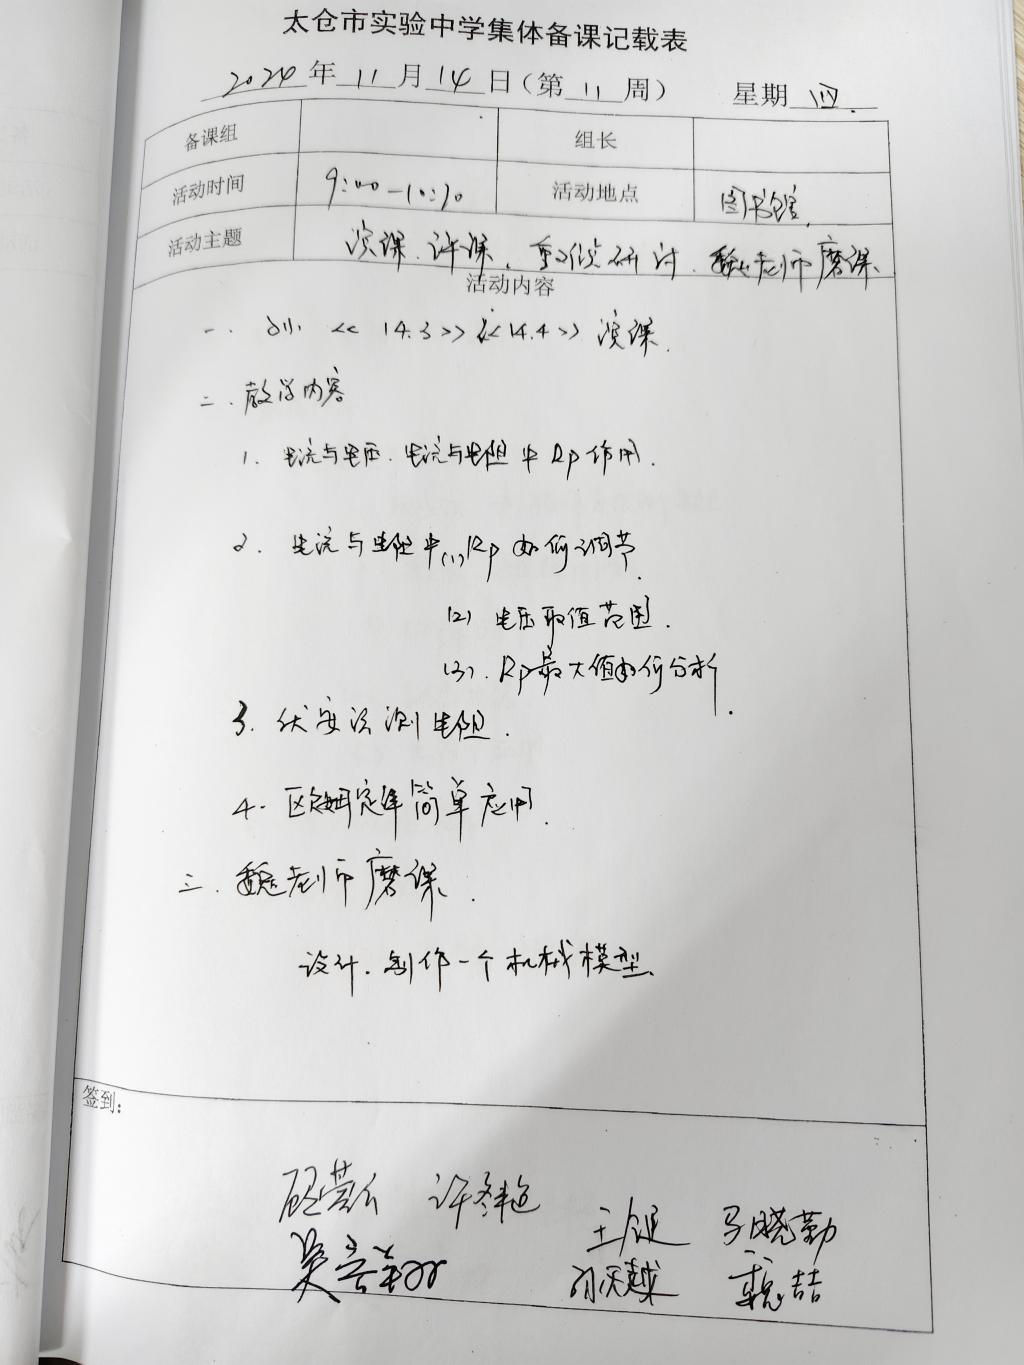 太仓市实验中学集体备课记载表
2024年11月14日（第11周） 星期四.
备课组 组长
活动时间 9:00-10:30 活动地点 图书馆.
活动主题 演课.评课.重难点研讨.魏老师磨课.
活动内容
一. <<14.3>> <<14.4>>演课.
二.教学内容
1. 电流与电压.电流与电阻中Rp作用.
2. 电流与电阻中(1)Rp如何调节.
(2) 电压取值范围.
(3). Rp最大值如何分析.
3. 伏安法测电阻.
4. 欧姆定律简单应用.
三. 魏老师磨课.
设计.制作一个机械模型.
签到:
王 马晓勤
魏喆